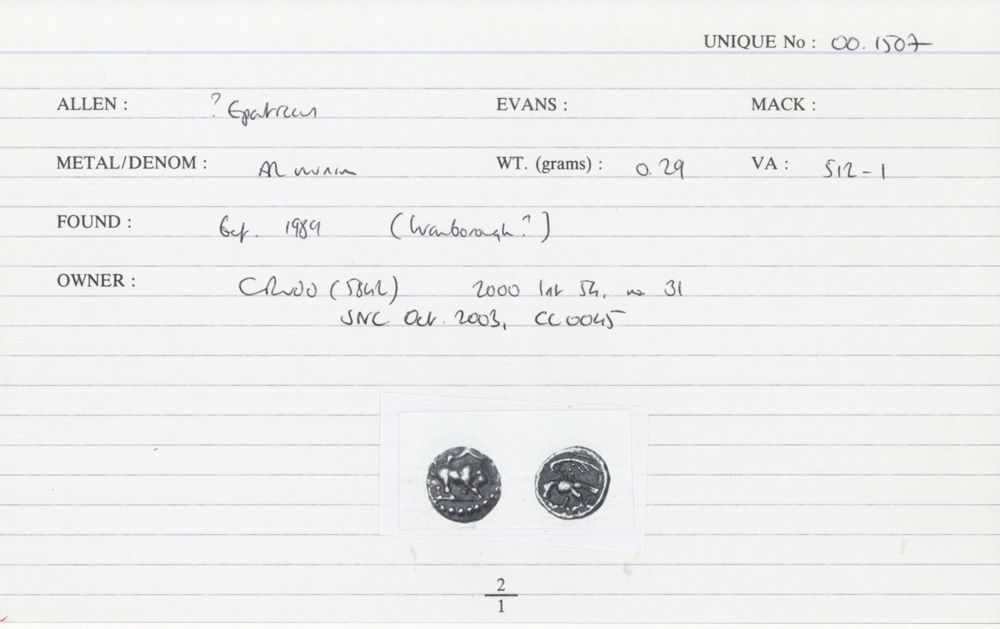 UNIQUE No : 00.1507
ALLEN : ? Epaticcus EVANS : MACK :
METAL/DENOM : AR WT. (grams) : 0.29 VA : 512-1
FOUND : bef. 1989 (Wanborough?)
OWNER : CR 2000 54, no 31
SNC Oct. 2003, CC0045
2
1